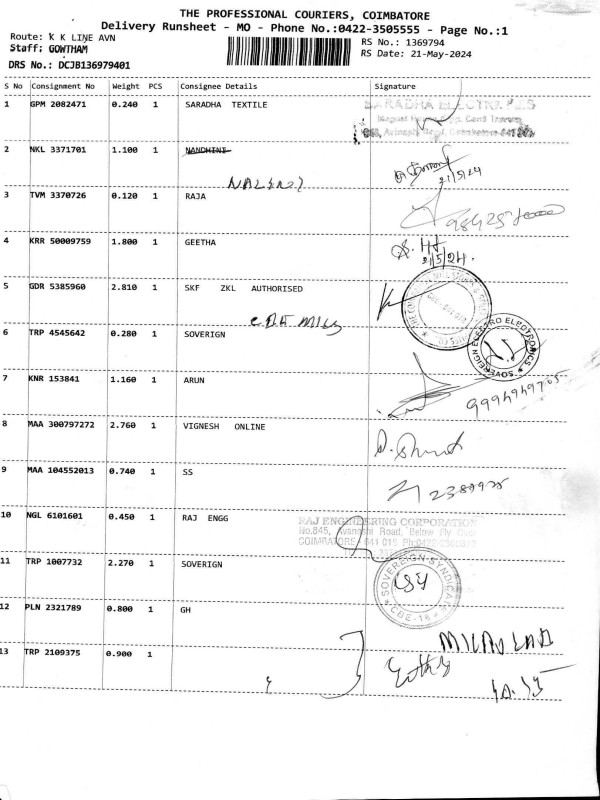 THE PROFESSIONAL COURIERS, COIMBATORE
Delivery Runsheet - MO - Phone No.:0422-3505555 - Page No.:1
Route: K K LINE AVN
Staff: GOWTHAM
RS No.: 1369794
RS Date: 21-May-2024
DRS No.: DCJB136979401
S No Consignment No Weight PCS Consignee Details Signature
1 GPM 2082471 0.240 1 SARADHA TEXTILE
2 NKL 3371701 1.100 1 NANDHINI
21/5/24
3 TVM 3370726 0.120 1 RAJA
4 KRR 50009759 1.800 1 GEETHA
21/5/24.
5 GDR 5385960 2.810 1 SKF ZKL AUTHORISED
6 TRP 4545642 0.280 1 SOVERIGN
SOVEREIGN ELECTRO ELECTRONICS
7 KNR 153841 1.160 1 ARUN
8 MAA 300797272 2.760 1 VIGNESH ONLINE
9 MAA 104552013 0.740 1 SS
10 NGL 6101601 0.450 1 RAJ ENGG
RAJ ENGINEERING CORPORATION
No.845, Avanashi Road, Below Fly Over
COIMBATORE - 641 018
11 TRP 1007732 2.270 1 SOVERIGN
SOVEREIGN SYNDICATE
CBE-18
12 PLN 2321789 0.800 1 GH
13 TRP 2109375 0.900 1